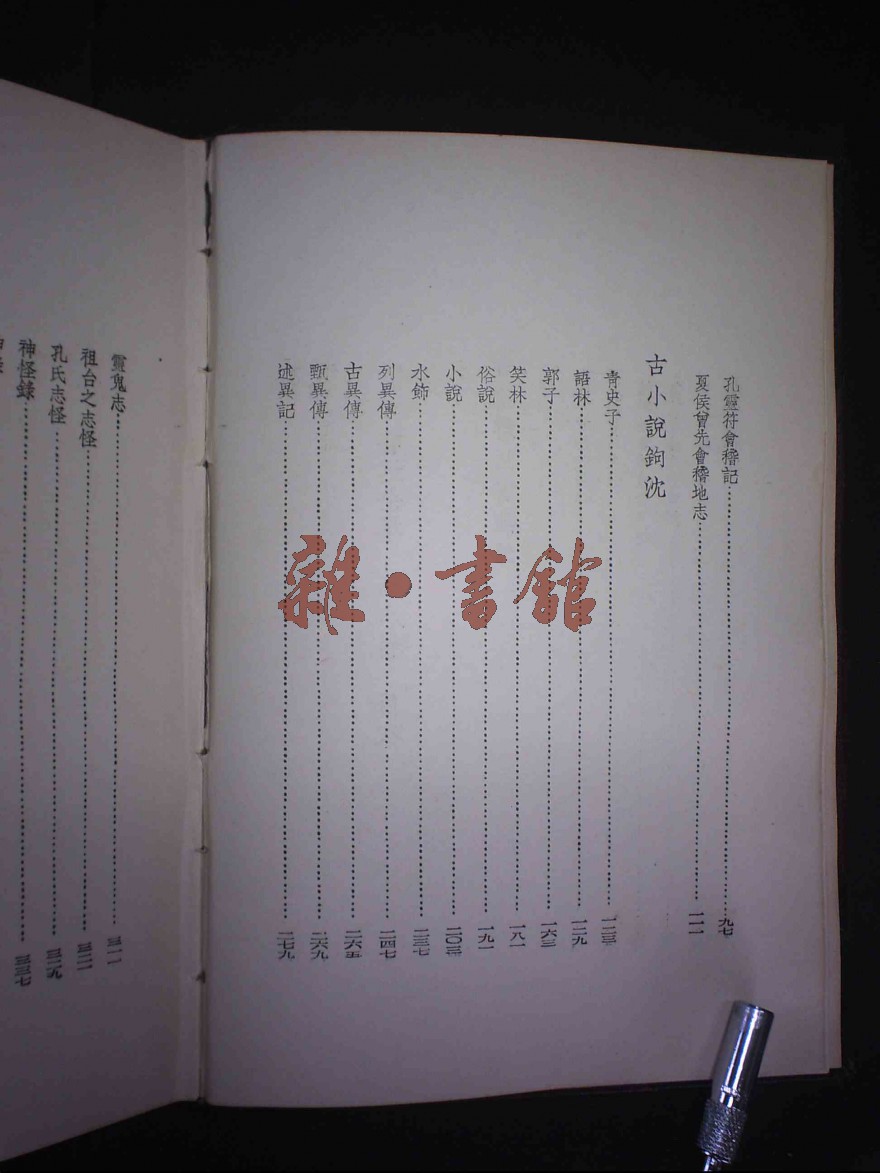 孔靈符會稽記……九七
夏侯曾先會稽地志……一一一
古小說鉤沈
青史子……一二三
語林……一二九
郭子……一六三
笑林……一八一
俗說……一九一
小說……二〇三
水飾……二三七
列異傳……二四七
古異傳……二六五
甄異傳……二六九
述異記……二七九
靈鬼志……三一一
祖台之志怪……三二一
孔氏志怪……三二九
神怪錄……三三七
雜·書館